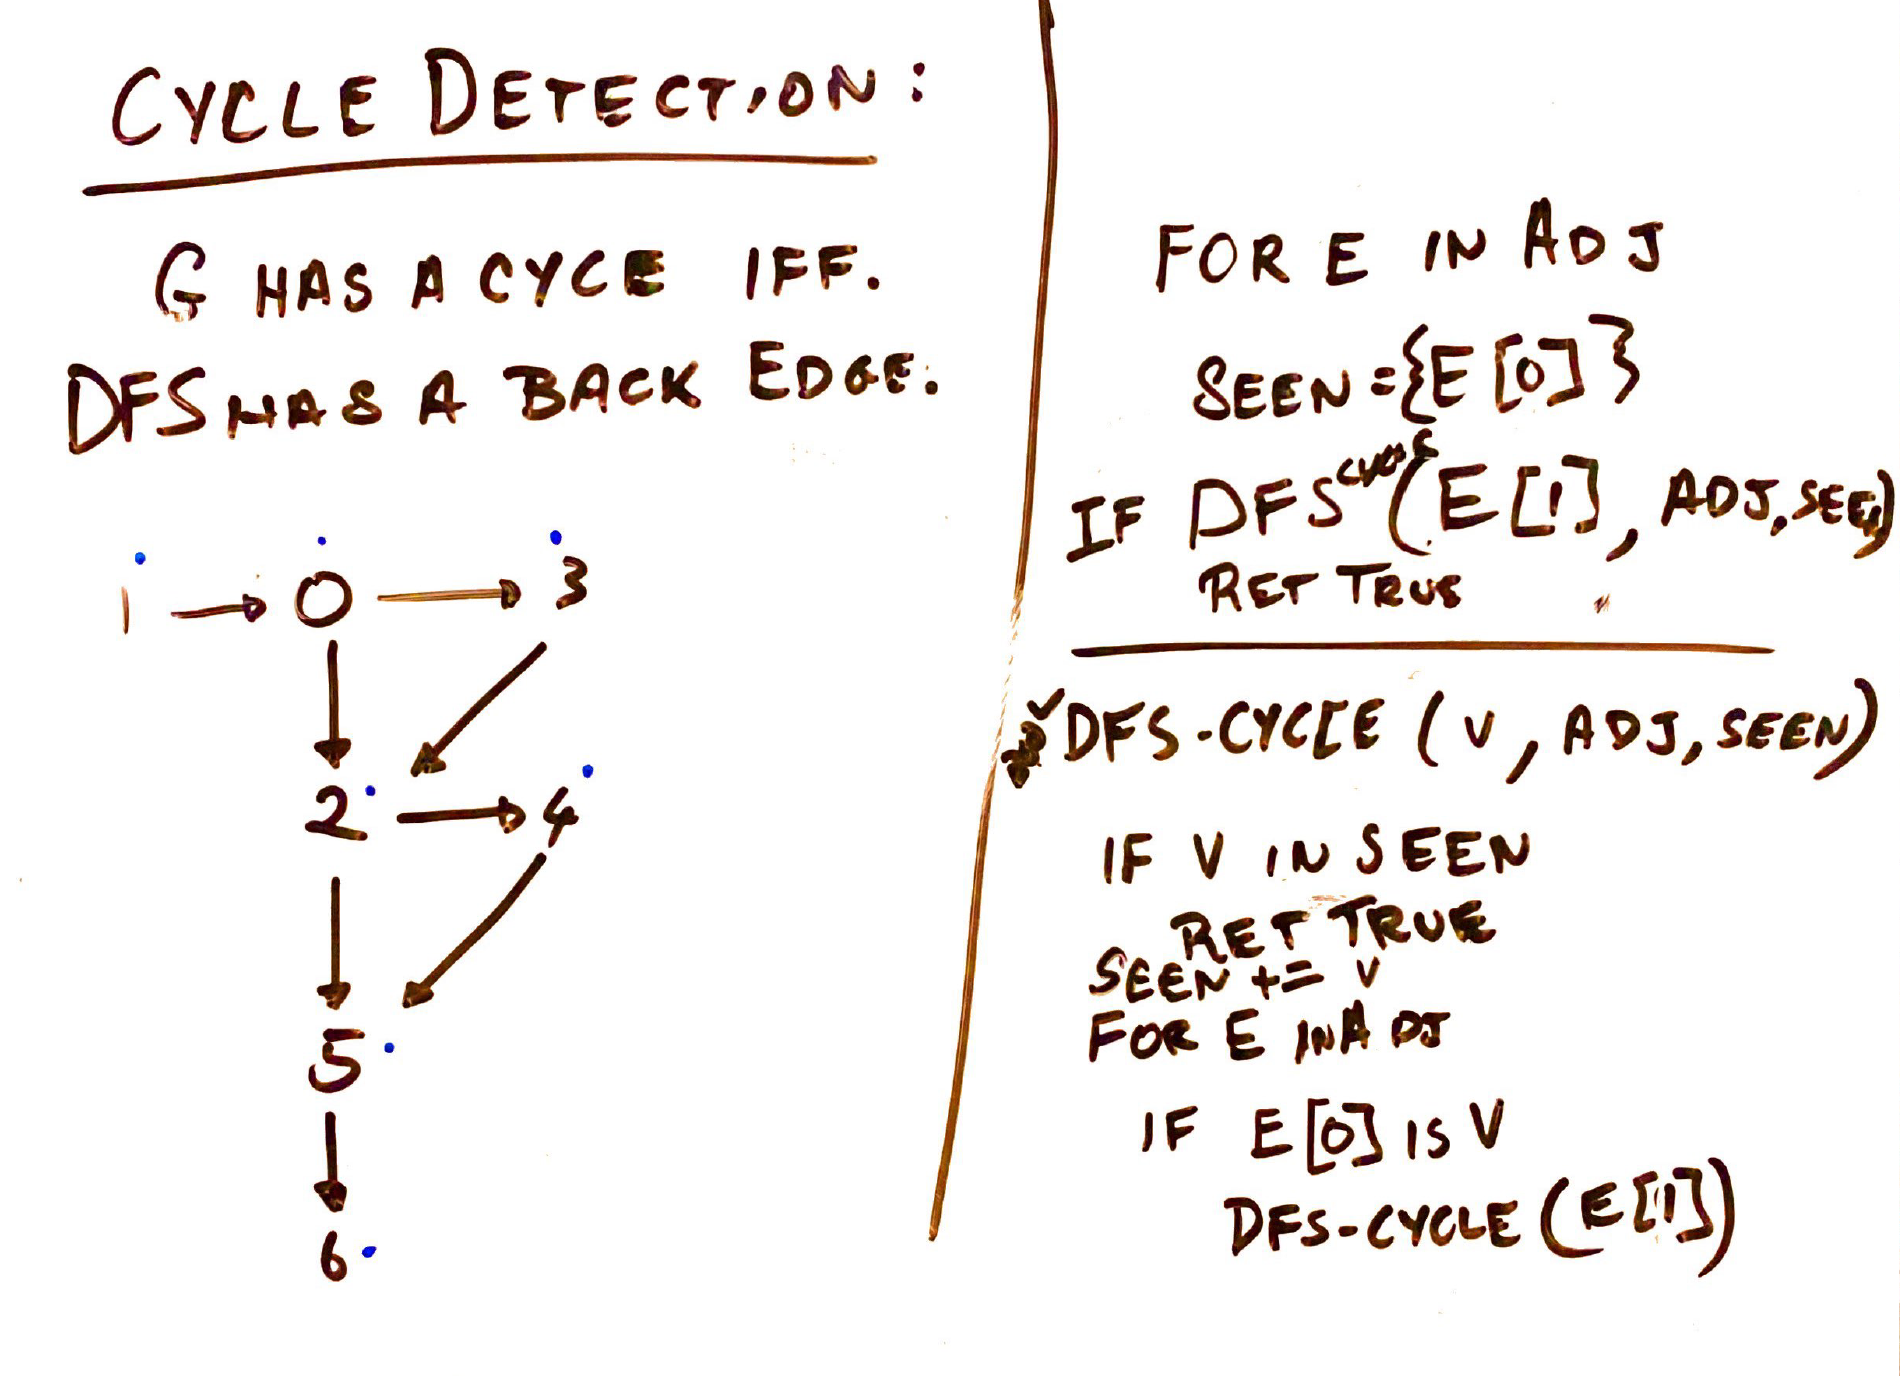 CYCLE DETECTION:
G HAS A CYCE IFF.
DFS HAS A BACK EDGE.
1 0 3
2 4
5
6
FOR E IN ADJ
SEEN = {E[0]}
IF DFS CYCLE (E[1], ADJ, SEEN)
RET TRUE
DFS-CYCLE (V, ADJ, SEEN)
IF V IN SEEN
RET TRUE
SEEN += V
FOR E IN ADJ
IF E[0] IS V
DFS-CYCLE (E[1])